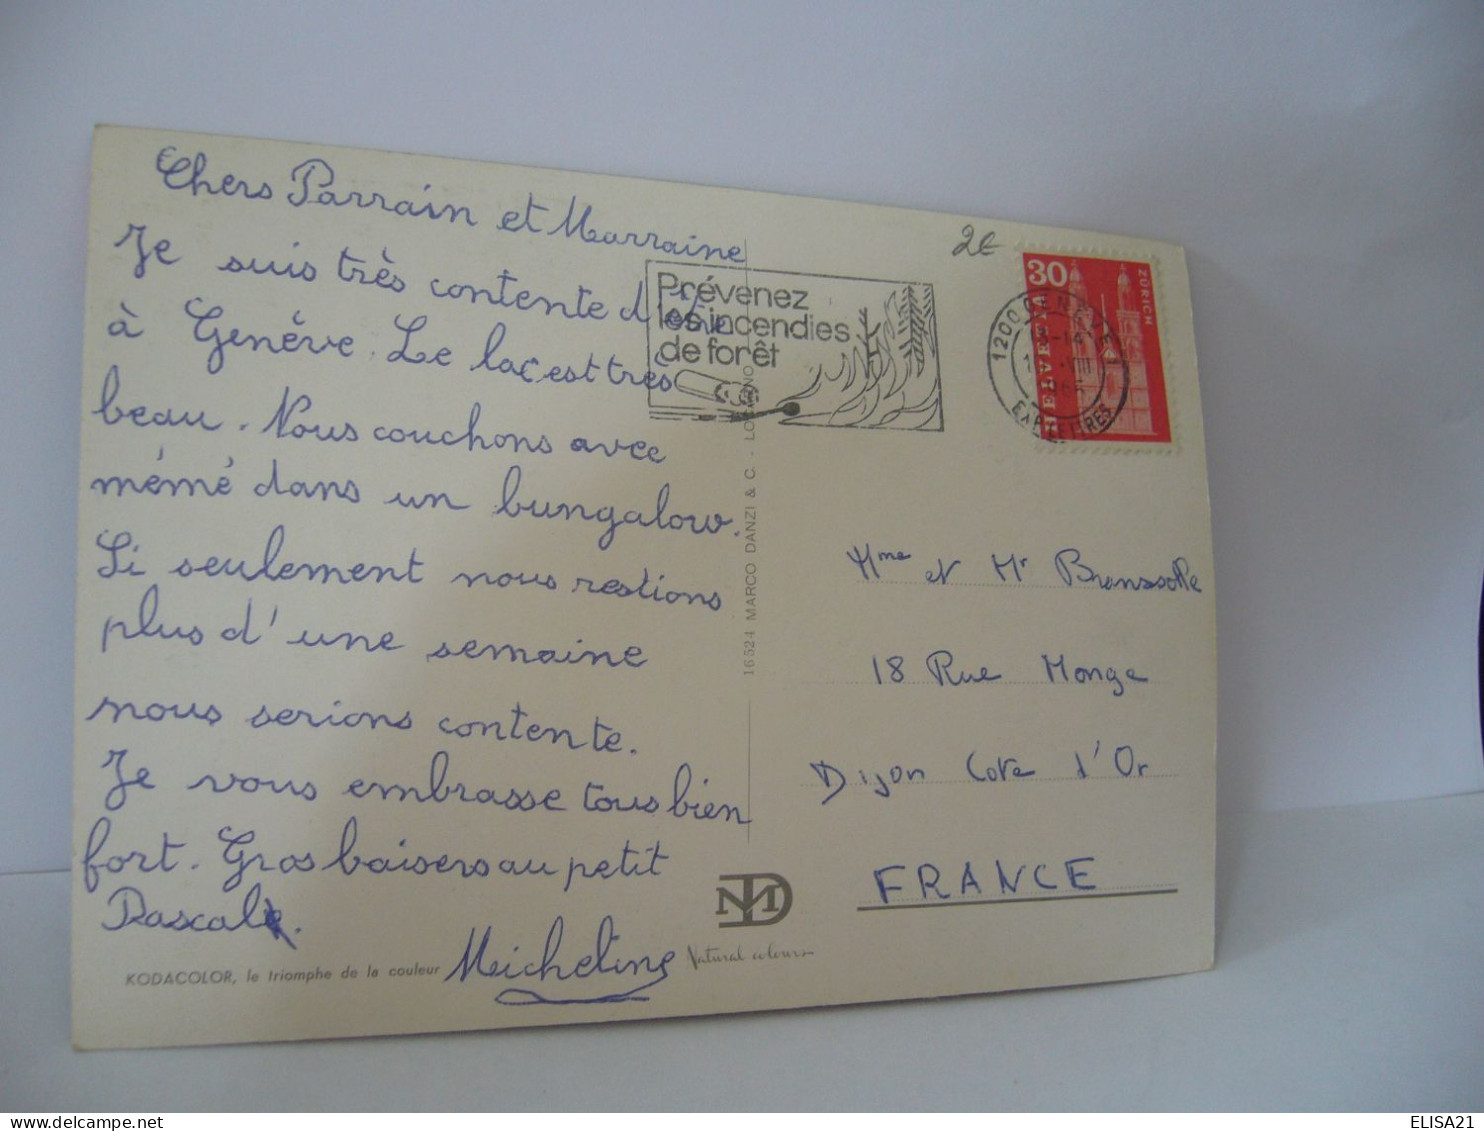 Chers Parrain et Marraine
Je suis très contente d'être
à Genève. Le lac est très
beau. Nous couchons avec
mémé dans un bungalow.
Si seulement nous restions
plus d'une semaine
nous serions contente.
Je vous embrasse tous bien
fort. Gros baisers au petit
Pascal.
Micheline
KODACOLOR, le triomphe de la couleur
Prévenez
les incendies
de forêt
16524 MARCO DANZI & C. - LOCARNO
Natural colours
2€
30
HELVETIA
ZÜRICH
1200 GENÈVE
EXP. LETTRES
Mme et Mr
18 Rue Monge
Dijon Cote d'Or
FRANCE
ELISA21